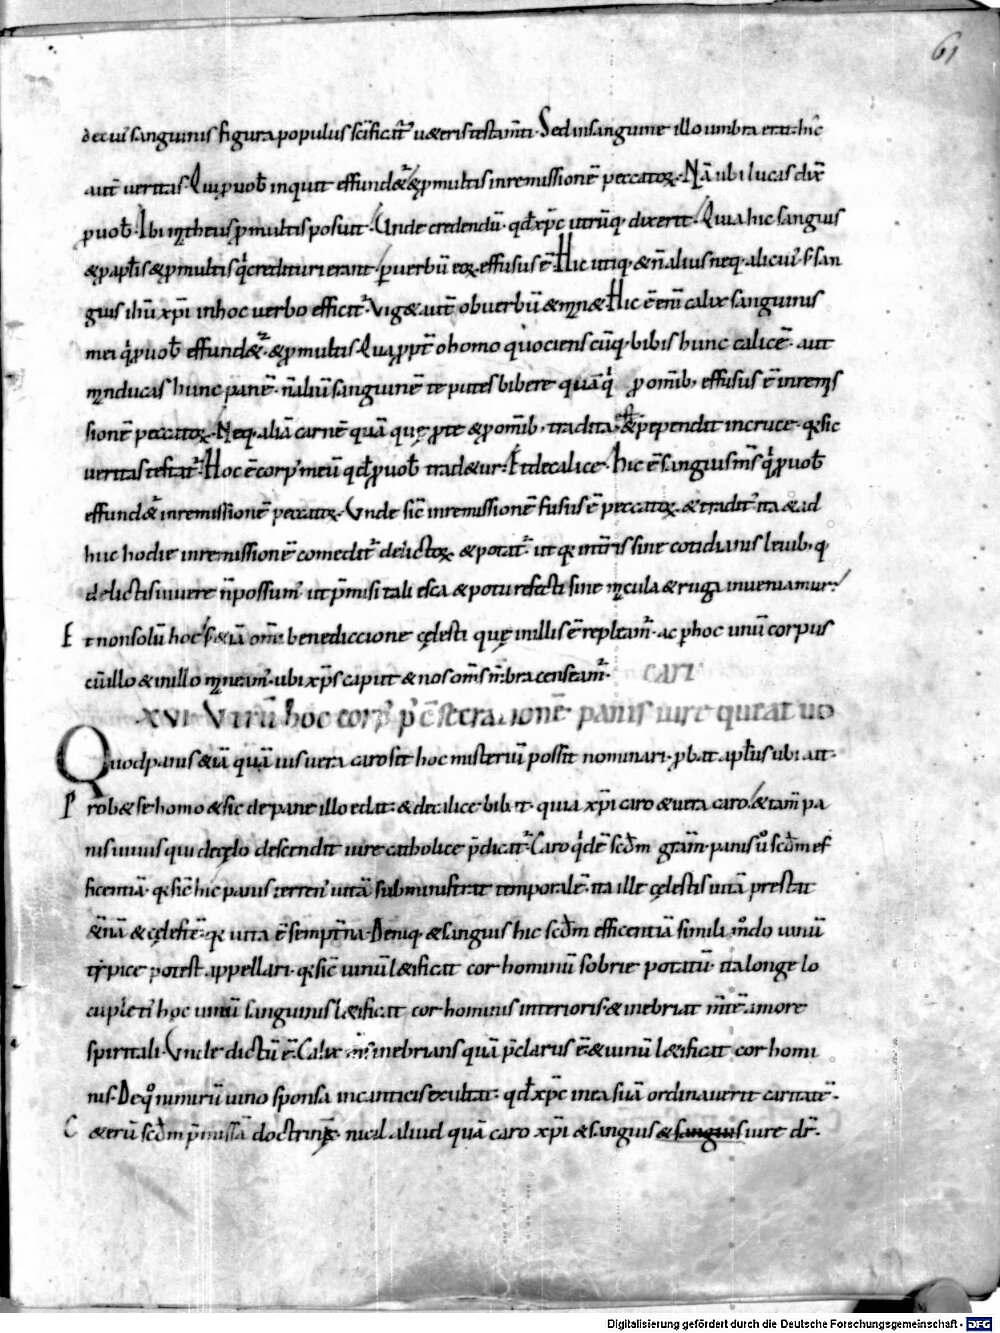 61
de cui᾽ sanguinis figura populus sc̄ificat᾽ uet̄eris testam̄ti. Sed in sanguine illo umbra erat. hic
aut̄ ueritas. Qui ꝓ uob̄ inquit effundet᾽ & ꝓ multis in remissionē peccatoꝝ. Nā ubi lucas dix̄
ꝓ uob̄. Ibi matheus ꝓ multis posuit. Unde credendū. qd̄ xp̄c utrūq. dixerit. Quia hic sanguis
& ꝓ ap̄lis & ꝓ multis q̄ credituri erant. ꝑ uerbū eoꝝ. effusus ē. Hic utiq. & n̄ alius neq. alicui᾽ s; san
guis ih̄u xp̄i in hoc uerbo efficit᾽. Viget aut̄ ob uerbū & manet. Hic ē eni̅ calix sanguinis
mei q̄ ꝓ uob̄ effundet᾽. & ꝓ multis. Qua ꝓpt̄ o homo quociens cūq. bibis hunc calicē. aut
manducas hunc panē. n̄ aliū sanguinē te putes bibere quā q̄ ꝓ omib, effusus ē in remis
sionē peccatoꝝ. Neq. aliā carnē quā quę ꝓ te & ꝓ omib. tradita. & p̄ependit in cruce. qꝛ sic
ueritas testat᾽. Hoc ē corp᾽ meū qd̄ ꝓ uob̄ tradetur. Et de calice. hic ē sanguis m̄s q̄ ꝓ uob̄
effundet᾽ in remissionē peccatoꝝ. Unde sic̄ in remissionē fusus ē peccatoꝝ. & tradit᾽ ita & ad
huc hodie in remissionē comedit᾽ delictoꝝ & potat᾽. ut qꝛ int̄ris sine cotidianis leuib, q
delictis uiuere n̄ possum᾽ ut p̄misi tali esca & potu refecti sine macula & ruga inueniamur.
Et non solū hoc s; etiā omi benediccione cęlesti quę in illis ē repleam᾽. ac p hoc unū corpus
cū illo & in illo maneam᾽. ubi xp̄s caput & nos om̄s mēbra censeam᾽. CARI
XVI. Utrū hoc corp᾽ p᾽ c̄secrationē panis iure qui at uo
Quod panis etiā quā uis uera caro sit hoc misteriū possit nominari. ꝓbat ap̄lus ubi ait.
Probet se homo & sic de pane illo edat. & de calice bibat. quia xp̄i caro & uera caro. & tam̄ pa
nis uiuus qui de cęlo descendit iure catholice p̄dicat᾽. Caro q̄dē sc̄dm gratiā. panis u̅ sc̄dm ef
ficentiā. qꝛ sic̄ hic panis terren᾽ uitā subministrat temporalē. ita ille cęlestis uitā prestat
et̄nā & cęlestē. qꝛ uita ē sempit̄na. Deniq. & sanguis hic sc̄dm efficentiā simili modo uinū
tipice potest appellari. qꝛ sic̄ uinū letificat cor hominū sobrie potatū. ita longe lo
cupleti᾽ hoc uinū sanguinis letificat cor hominis interioris. & inebriat m̄tē amore
spiritali. Unde dictū ē. Calix m̄s inebrians quā p̄clarus ē. & uinū letificat cor homi
nis. De quo nimirū uino sponsa in canticis exultat. qd̄ xp̄c in ea suā ordinauerit caritatē.
Ceterū sc̄dm p̄missā doctrinā nicil aliud quā caro xp̄i & sanguis & sanguis iure dr̄.
Digitalisierung gefördert durch die Deutsche Forschungsgemeinschaft - DFG